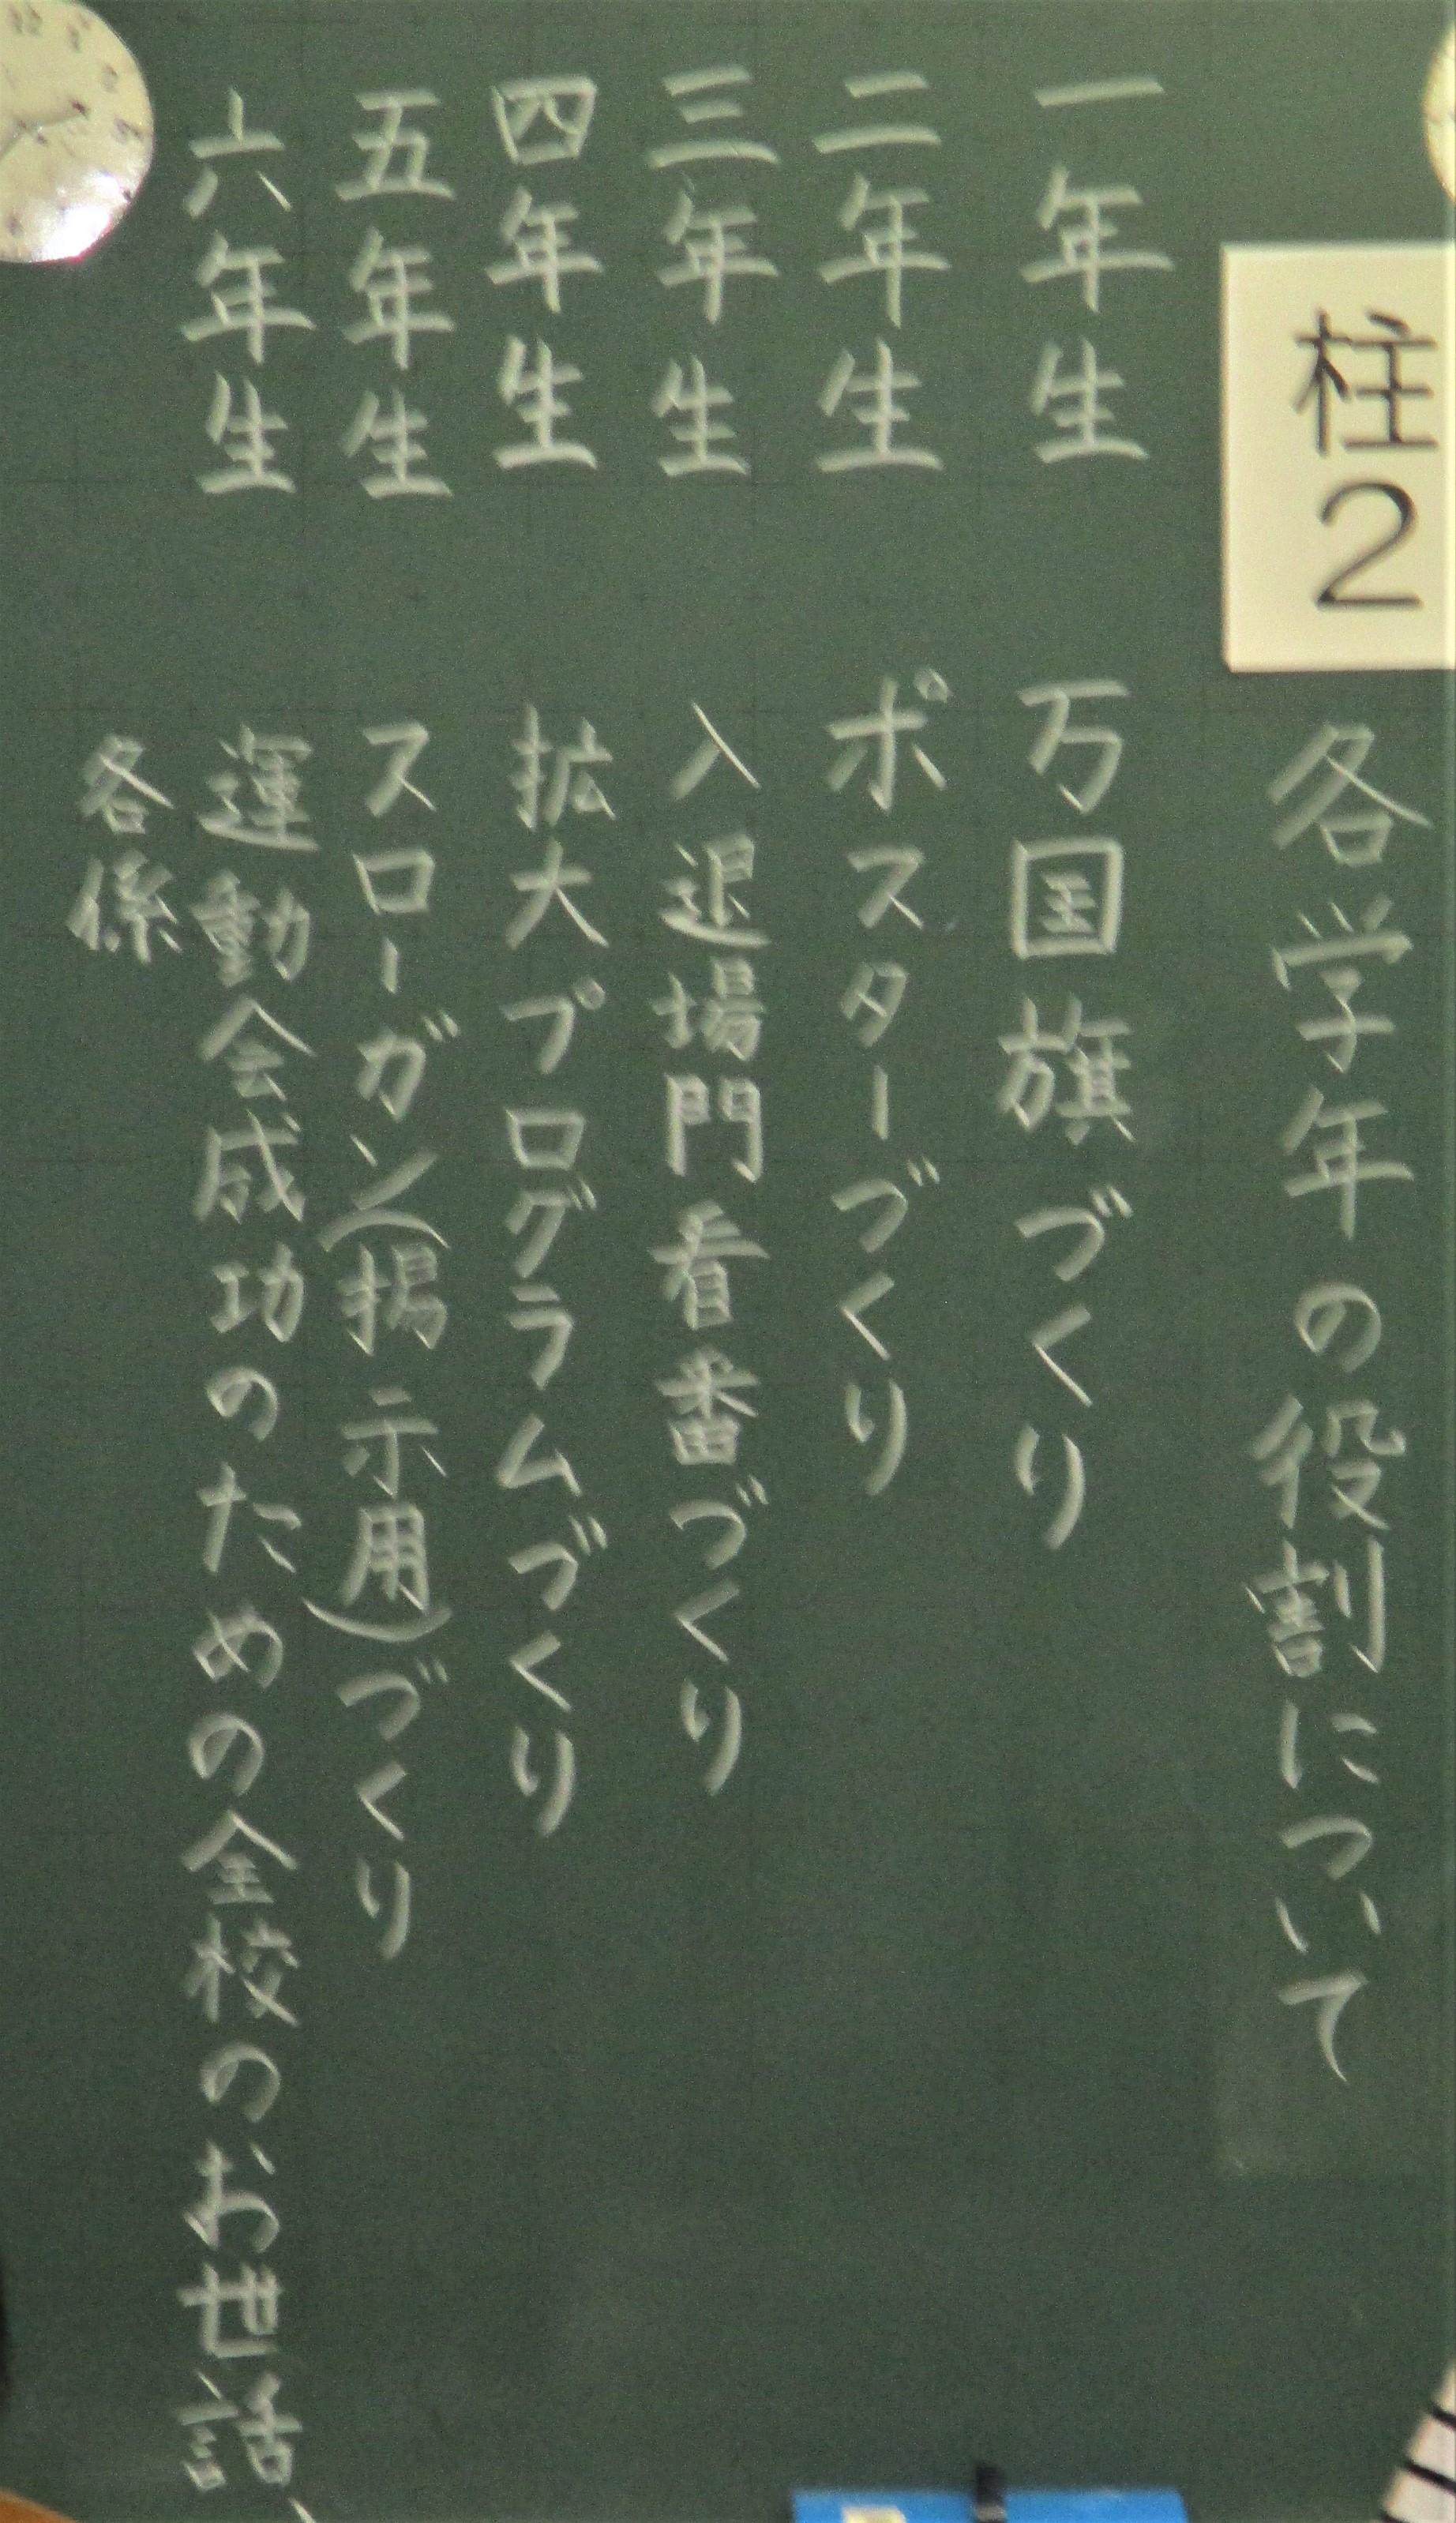 柱2
各学年の役割について
一年生 万国旗づくり
二年生 ポスターづくり
三年生 入退場門看番づくり
四年生 拡大プログラムづくり
五年生 スローガン(掲示用)づくり
六年生 運動会成功のための全校のお世話、
各係